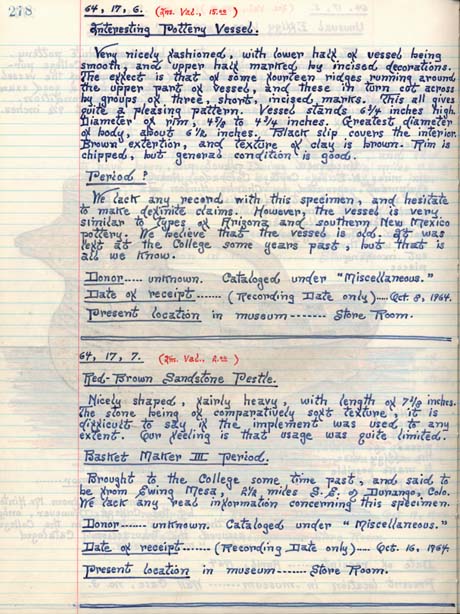 278
64, 17, 6. (Ins. Val., 15.00)
Interesting Pottery Vessel.
Very nicely fashioned, with lower half of vessel being
smooth, and upper half marked by incised decorations.
The effect is that of some fourteen ridges running around
the upper part of vessel, and these in turn cut across
by groups of three, short, incised, marks. This all gives
quite a pleasing pattern. Vessel stands 6 1/4 inches high.
Diameter of rim, 4 1/8 to 4 1/4 inches. Greatest diameter
of body, about 6 1/2 inches. Black slip covers the interior.
Brown extertior, and texture of clay is brown. Rim is
chipped, but general condition is good.
Period ?
We lack any record with this specimen, and hesitate
to make definite claims. However, the vessel is very
similar to types of Arizona and southern New Mexico
pottery. We believe that the vessel is old. It was
left at the College some years past, but that is
all we know.
Donor..... unknown. Cataloged under "Miscellaneous."
Date of receipt ....... (Recording Date only)..... Oct. 8, 1964.
Present location in museum ------- Store Room.
64, 17, 7. (Ins. Val., 2.00)
Red-Brown Sandstone Pestle.
Nicely shaped, fairly heavy, with length of 7 7/8 inches.
The stone being of comparatively soft texture, it is
difficult to say if the implement was used to any
extent. Our feeling is that usage was quite limited.
Basket Maker III Period.
Brought to the College some time past, and said to
be from Ewing Mesa, 2 1/2 miles S.E. of Durango, Colo.
We lack any real information concerning this specimen.
Donor...... unknown. Cataloged under "Miscellaneous."
Date of receipt ------ (Recording Date only) .... Oct. 16, 1964.
Present location in museum ------ Store Room.